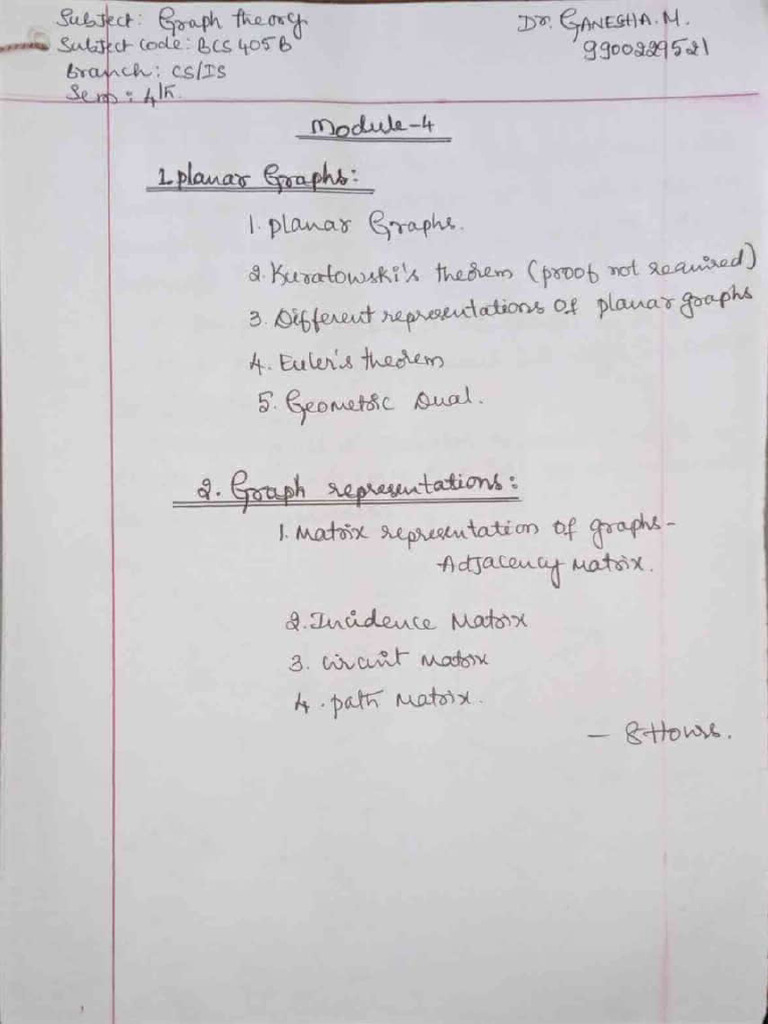 Subject: Graph theory
Dr. GANESHA.M.
Subject code: BCS405B
9900229521
Branch: CS/IS
Sem: 4th
Module-4
1. planar Graphs:
1. planar Graphs.
2. Kuratowski's theorem (proof not required)
3. Different representations of planar graphs
4. Euler's theorem
5. Geometric Dual.
2. Graph representations:
1. Matrix representation of graphs-
Adjacency Matrix.
2. Incidence Matrix
3. circuit Matrix
4. path Matrix.
- 8 Hours.